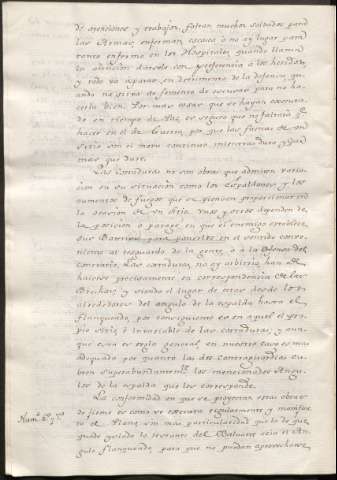 de atenciones y trabajos, faltan muchos soldados para
las Armas, enferman, escasea o no ay lugar para
tanto enfermo en los Hospitales, quando llaman
la atencion darselo con preferencia á los heridos,
y todo va á parar, en detrimento de la defensa, qu-
ando no sirva de fomento de escusar para no ha-
cerla bien. Por mas obras que se hayan executa-
do en tiempo de Paz, es seguro que no faltará q.e
hacer en el de Guerra, por que las faenas de un
Sitio son el moto continuo mientras dure, y por
mas que dure.
Las Cortaduras no son obras que admiten varia-
cion en su situacion como los Espaldones, y los
aumentos de fuegos que se pueden proporcionar en
la ocasion de un Sitio. Unas y otros dependen de
la posicion o parage, en que el enemigo establece
sus Baterias para ponerlos en el sentido conve-
niente al resguardo de la gente, o á la ofensa del
Contrario. Las cortaduras, no ay arbitrio han de
hacerse precisamente en correspondencia de las
Brechas, y siendo el lugar de estas desde los
alrededores del angulo de la espalda hasta el
flanqueado, por consiguiente es en aquel el pro-
pio sitio é invariable de las cortaduras, y aun-
que esta es regla general, en nuestro caso es mas
adequado por quanto las dos contraguardias cu-
bren superabundantem.te los mencionados Angu-
los de la espalda que les corresponde.
Num.o 2.o y 3.o
La conformidad en que se proyectan estas obras
de firme es como se executa regularmente y manifies-
ta el Plano, sin mas particularidad que la de que
quede aislado lo restante del Baluarte acia el An-
gulo flanqueado, para que no puedan aprovecharse